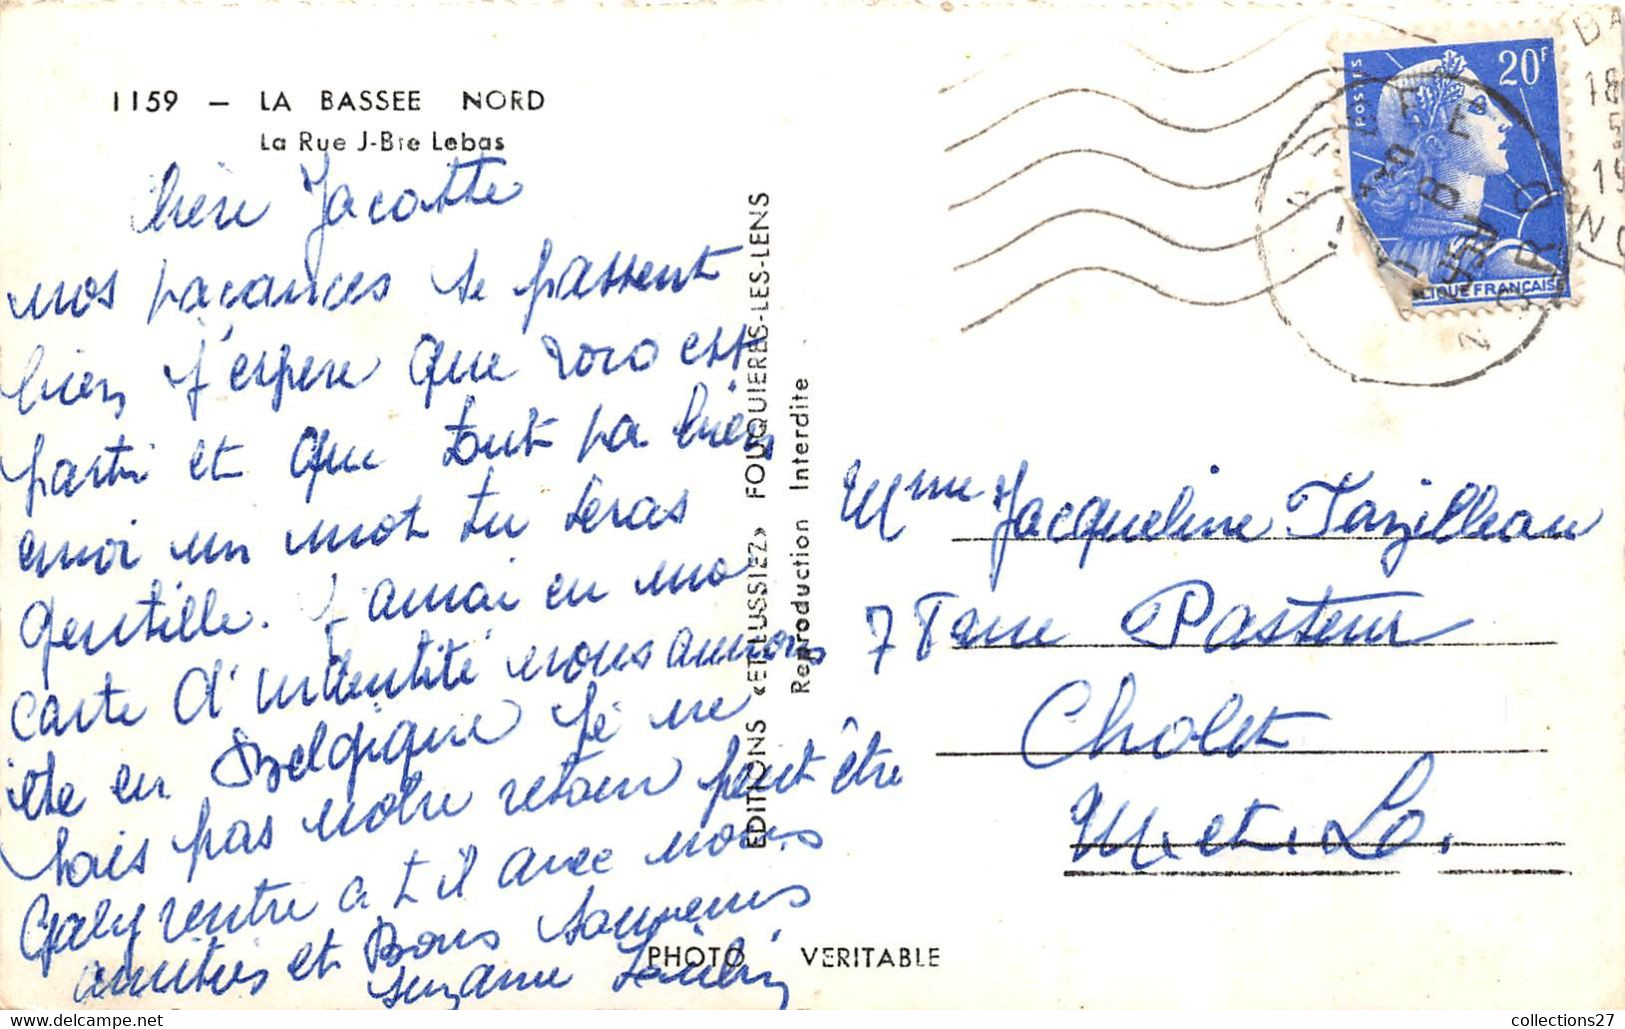 1159 – LA BASSEE NORD
La Rue J-Bte Lebas
chère Jacotte
nos vacances se passent
bien j'espere que roro est
parti et que tout va bien
envoi un mot tu seras
gentille. J'amai eu ma
carte d'intentité nous aurions
ete en Belgique je ne
sais pas notre retour peut être
Galy rentre a t il avec nous
amitiés et Bons souvenirs
Suzanne
EDITIONS «ETLUSSIEZ» FOUQUIERES-LES-LENS
Reproduction Interdite
PHOTO VERITABLE
POSTES
20F
LIQUE FRANÇAISE
Mme Jacqueline Tarzilleau
7 Pasteur
Cholet
M. et. Lo.
collections27